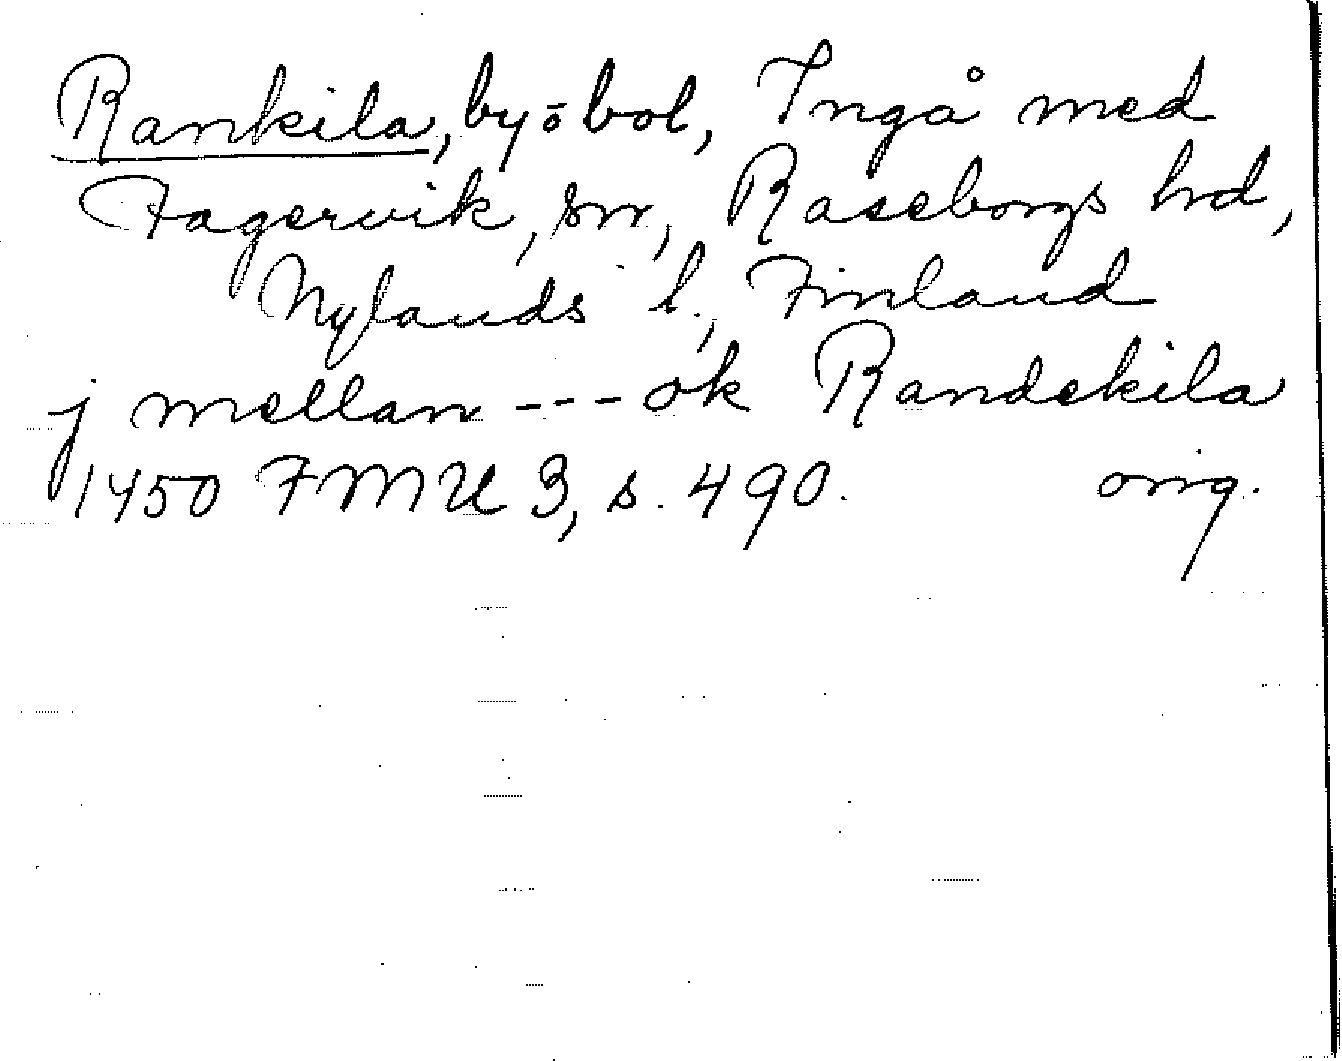 Rankila, by o bol, Ingå med
Fagervik, sn, Raseborgs hd,
Nylands l., Finland
j mellan --- ok Randekila
1450 FMU 3, s. 490. orig.